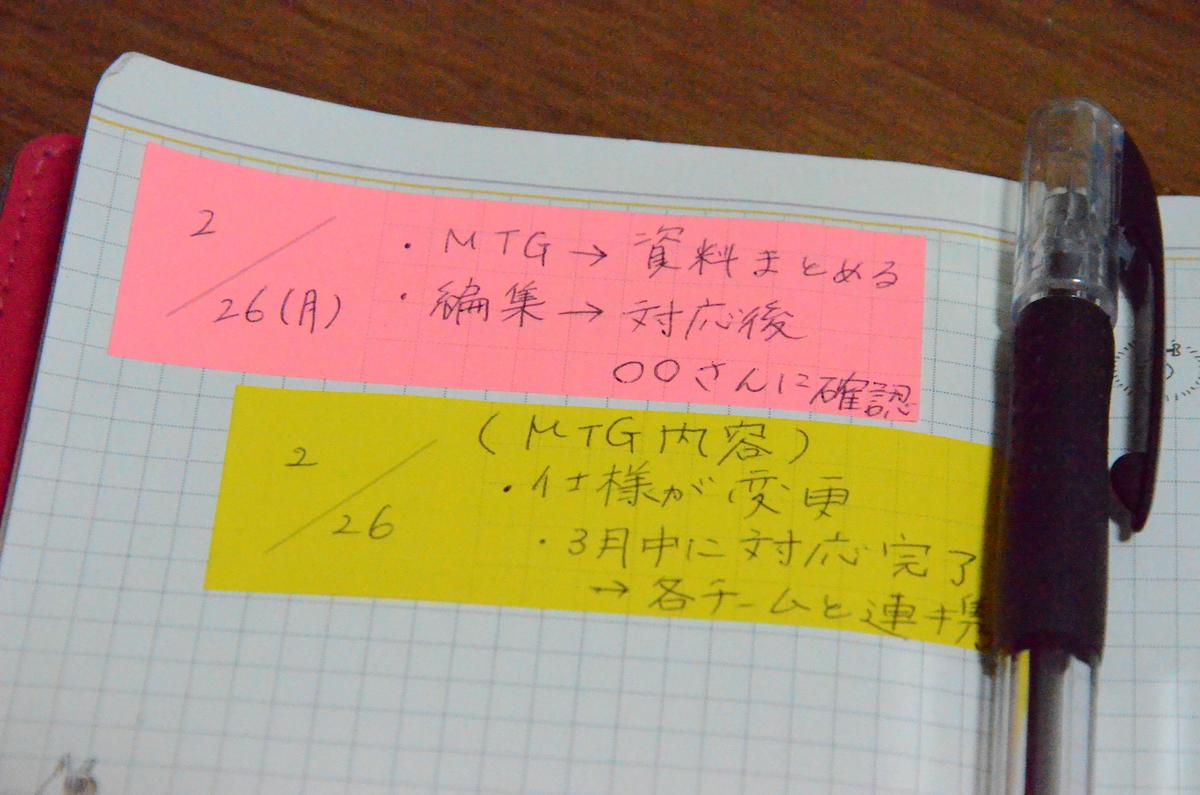 2/26(月)
・MTG→資料まとめる
・編集→対応後
〇〇さんに確認
2/26
(MTG内容)
・仕様が変更
・3月中に対応完了
→各チームと連携